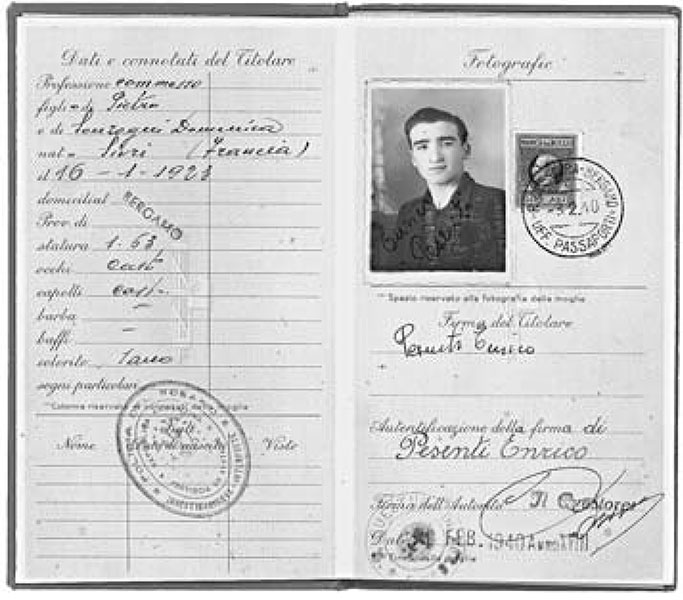 Dati e connotati del Titolare
Professione commesso
figlio di Pietro
e di Domenica
nato a (Francia)
il 16 - 1 - 1923
domiciliato BERGAMO
Prov. di
statura 1.63
occhi cast
capelli cast.
barba -
baffi -
colorito sano
segni particolari
Colonna riservata ai connotati della moglie
Figli
Nome Data di nascita Visto
Fotografie
UFF. PASSAPORTI
-3.2.40
Spazio riservato alla fotografia della moglie
Firma del Titolare
Pesenti Enrico
Autentificazione della firma di
Pesenti Enrico
Firma dell'Autorità Il Questore
Data FEB. 1940 Anno XVIII